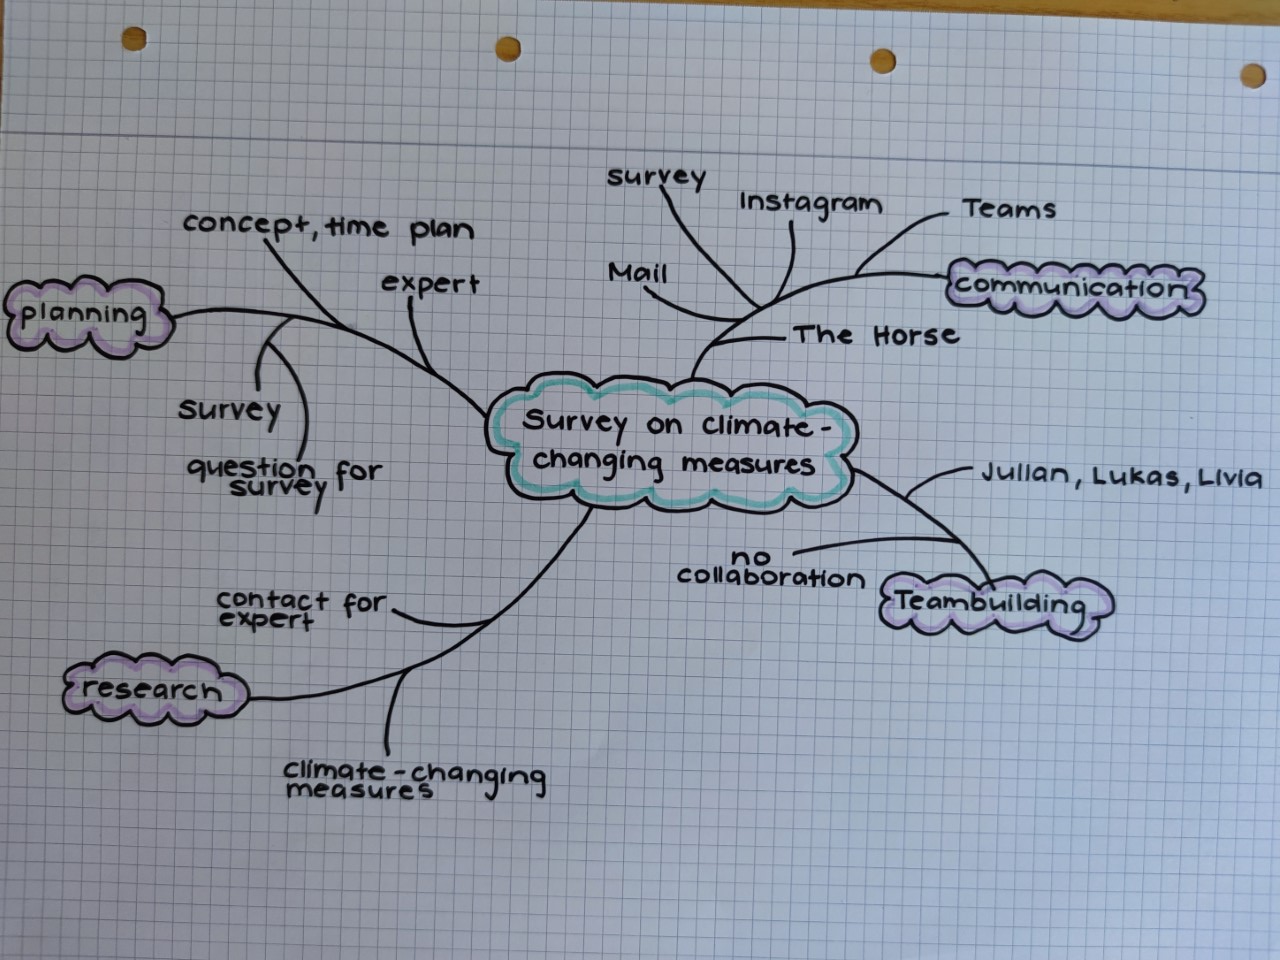 survey
Instagram
Teams
concept, time plan
Mail
expert
communication
planning
The Horse
survey
Survey on climate-
changing measures
question for
survey
Julian, Lukas, Livia
no
collaboration
Teambuilding
contact for
expert
research
climate-changing
measures